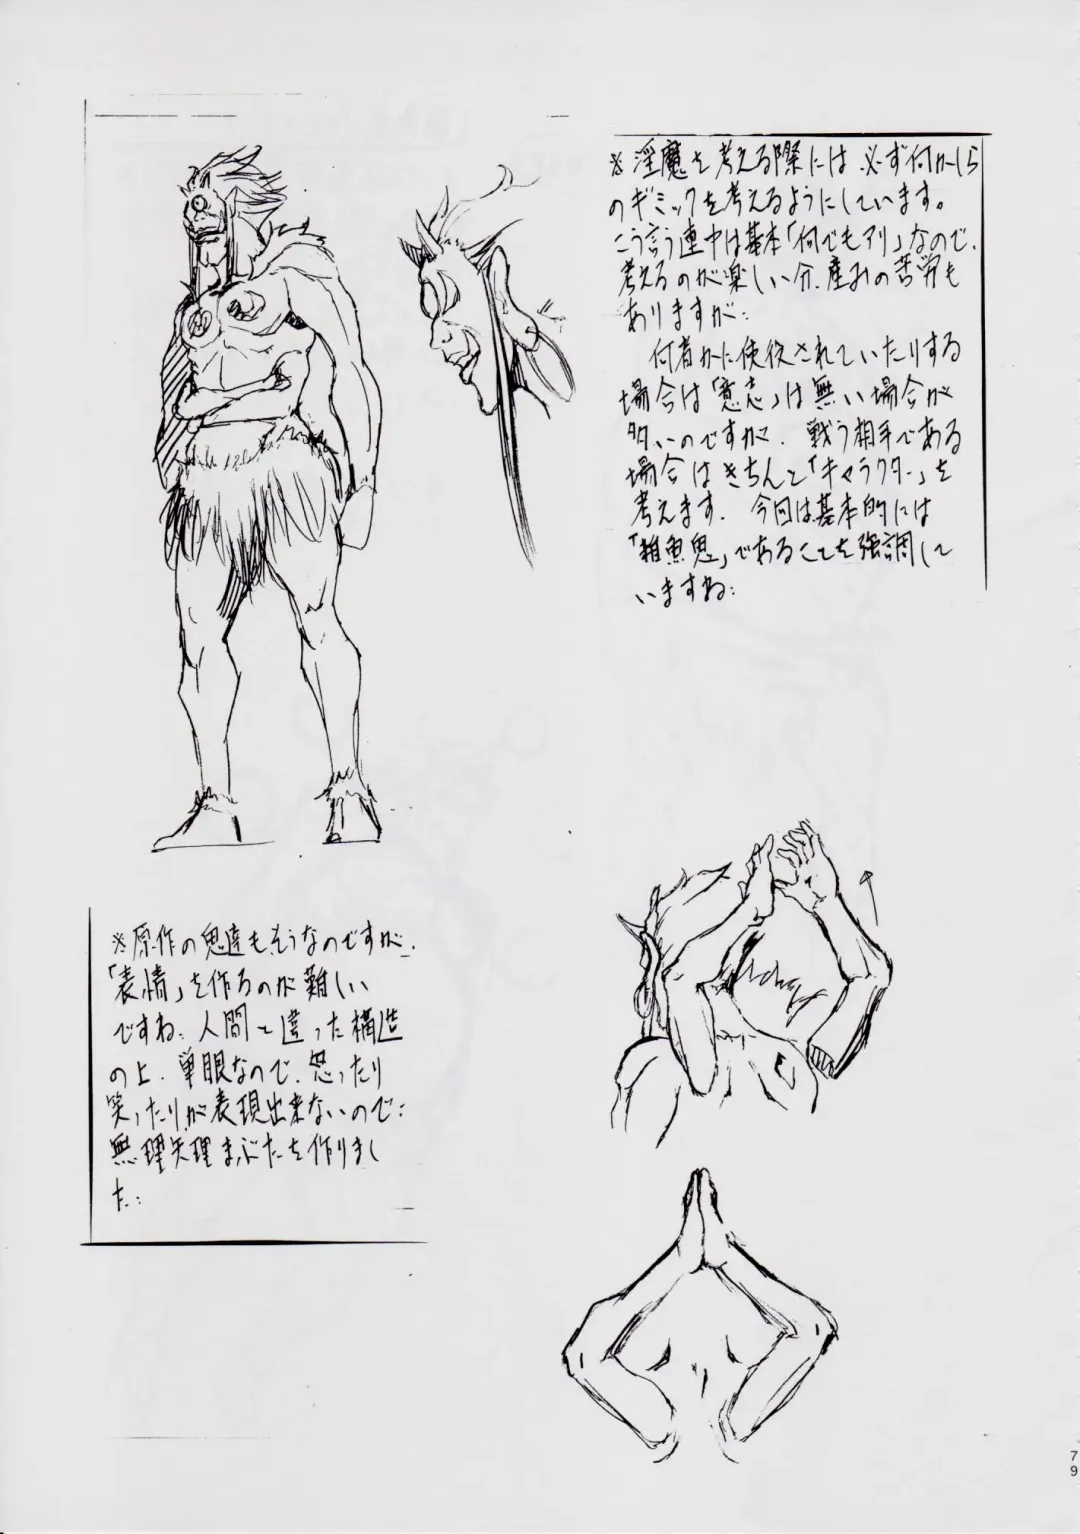 ※淫魔を考える際には必ず何かしら
のギミックを考えるようにしています。
こう言う連中は基本「何でもアリ」なので、
考えるのが楽しい分、産みの苦労も
ありますが…
何者かに使役されていたりする
場合は「意志」は無い場合が
多いのですが、戦う相手である
場合はきちんと「キャラクター」を
考えます。今回は基本的には
「雑魚鬼」であることを強調して
いますね…
※原作の鬼達もそうなのですが、
「表情」を作るのが難しい
ですね。人間と違った構造
の上、単眼なので、怒ったり
笑ったりが表現出来ないので…
無理矢理まぶたを作りまし
た…
79